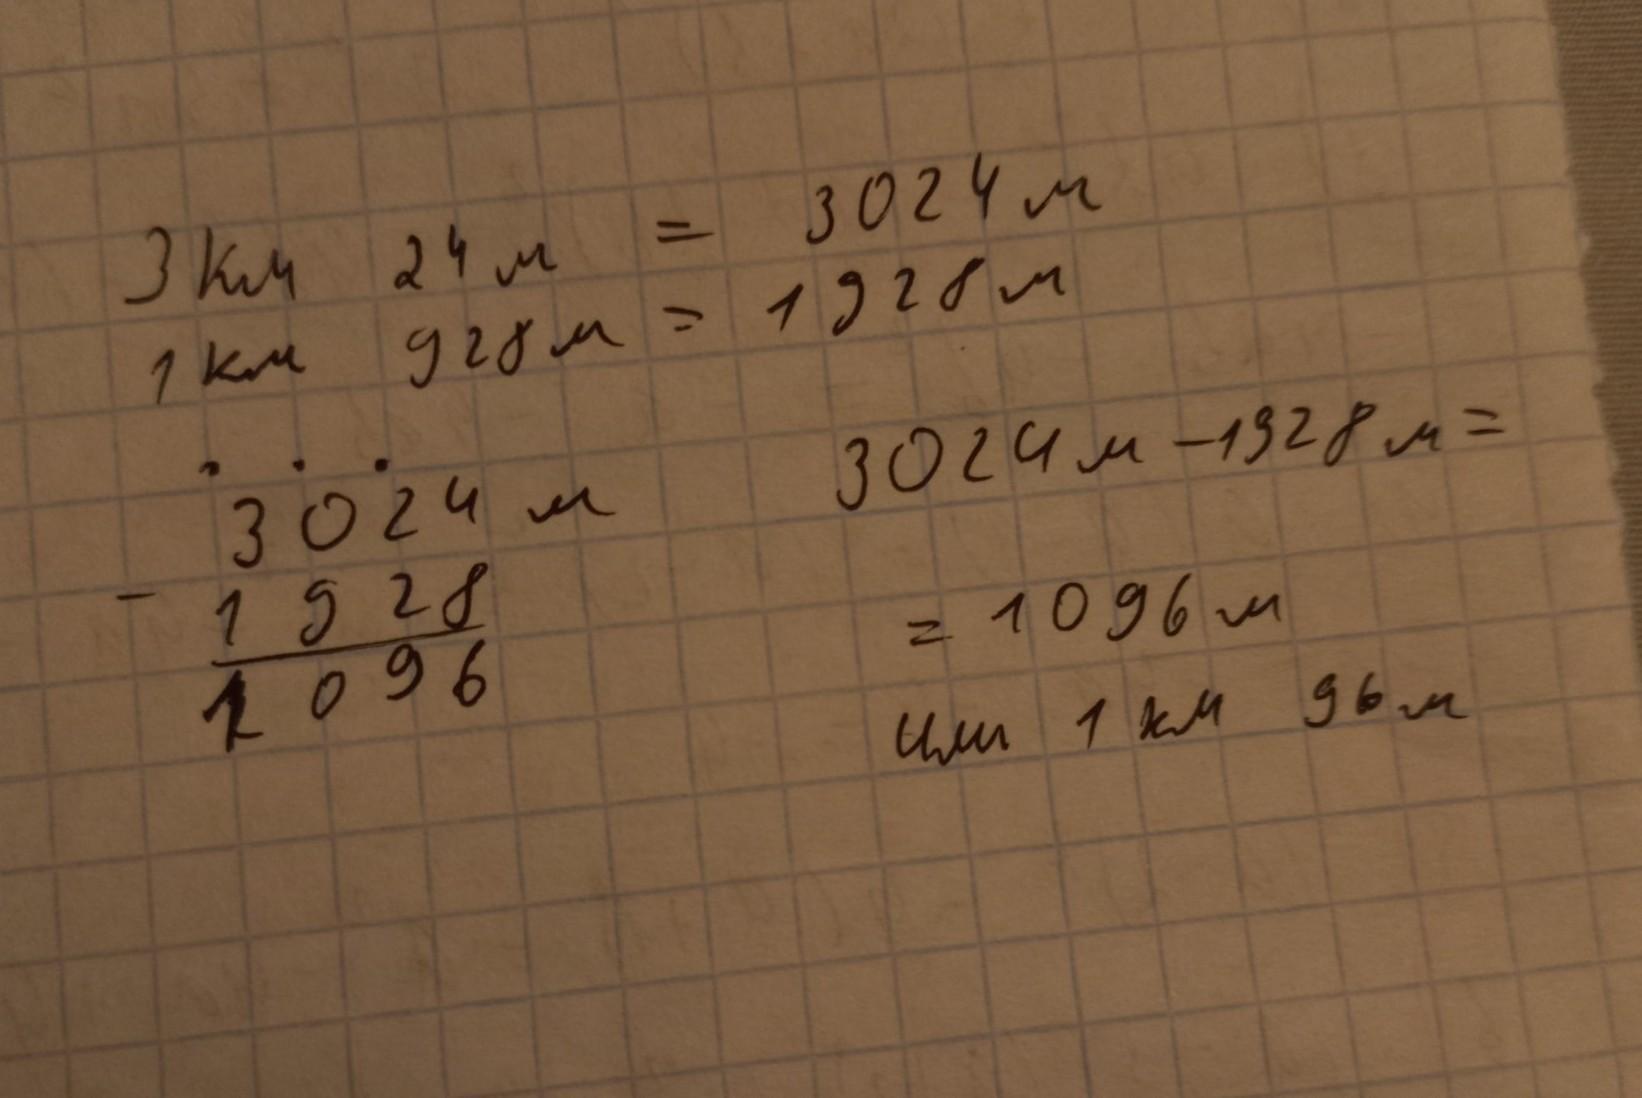 3 км 24 м = 3024 м
1 км 928 м = 1928 м
3024 м
- 1928
1096
3024 м - 1928 м =
= 1096 м
или 1 км 96 м